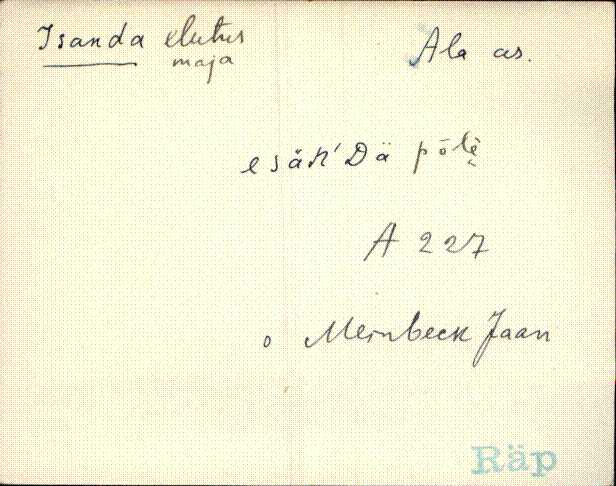 Isanda elutus Ala as.
maja
esäń'Dä põlè̬
A 227
o Meinbeck Jaan
Räp